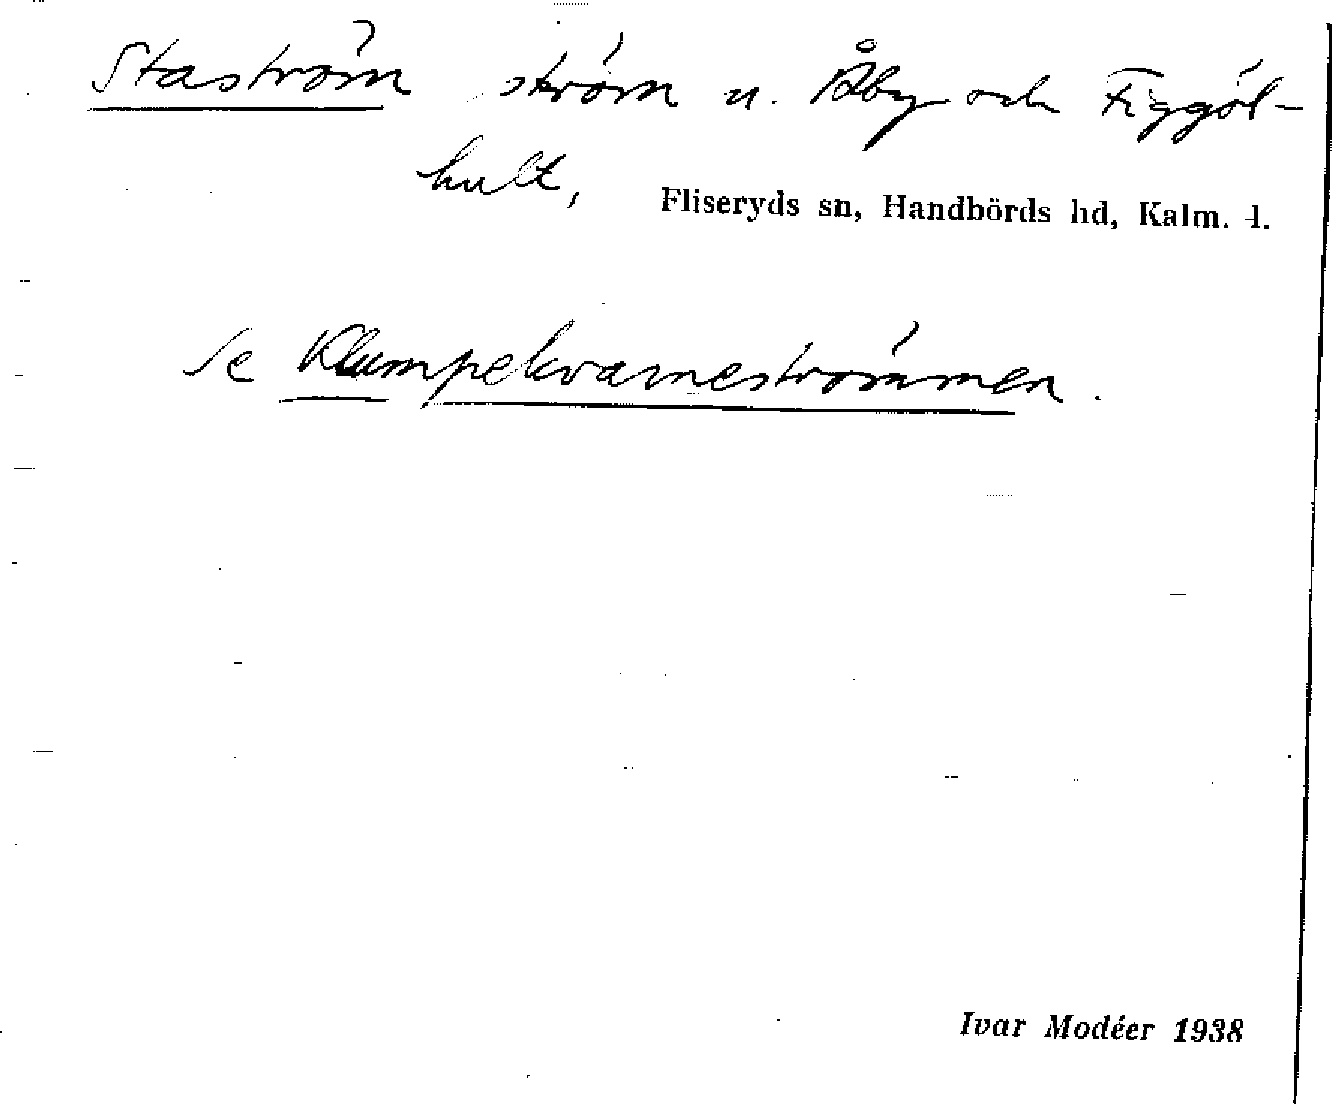 Staström ström u. Åby och Figgöl-
hult,
Fliseryds sn, Handbörds hd, Kalm. l.
Se Klumpekvarneströmmen.
Ivar Modéer 1938